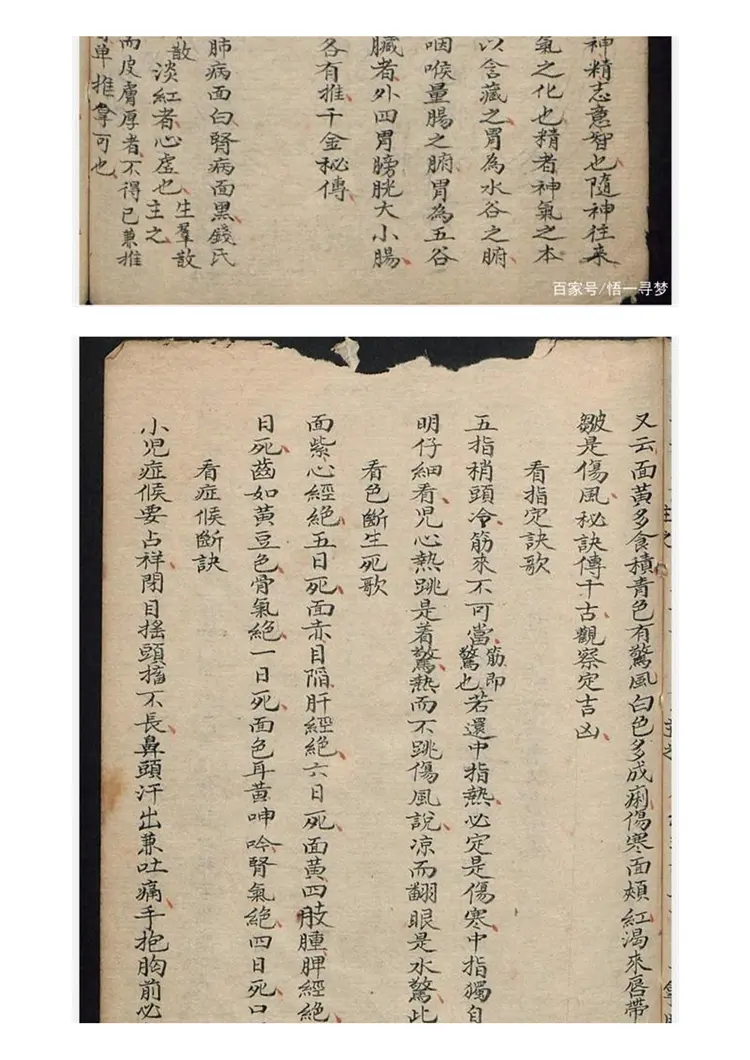 神精志意智也隨神往來
氣之化也精者神氣之本
以含藏之胃為水谷之腑
咽喉量腸之腑胃為五谷
臟者外四胃膀胱大小腸
各有推千金秘傳
肺病面白腎病面黑錢氏
散淡紅者心虛也生羣散主之
而皮膚厚者不得已兼推
单推拿可也
百家号/悟一寻梦
又云面黃多食積青色有驚風白色多成痢傷寒面頰紅渴來唇帶
皺是傷風秘訣傳千古觀察定吉凶
看指定訣歌
五指稍頭冷筋來不可當筋即驚也若還中指熱必定是傷寒中指獨自
明仔細看児心熱跳是着驚熱而不跳傷風說涼而翻眼是水驚此
看色斷生死歌
面紫心經絕五日死面赤目陷肝經絕六日死面黃四肢腫脾經絕
日死齒如黃豆色骨氣絕一日死面色耳黃呻吟腎氣絕四日死口
看症候斷訣
小児症候要占祥閉目搖頭搐不長鼻頭汗出兼吐痛手抱胸前必